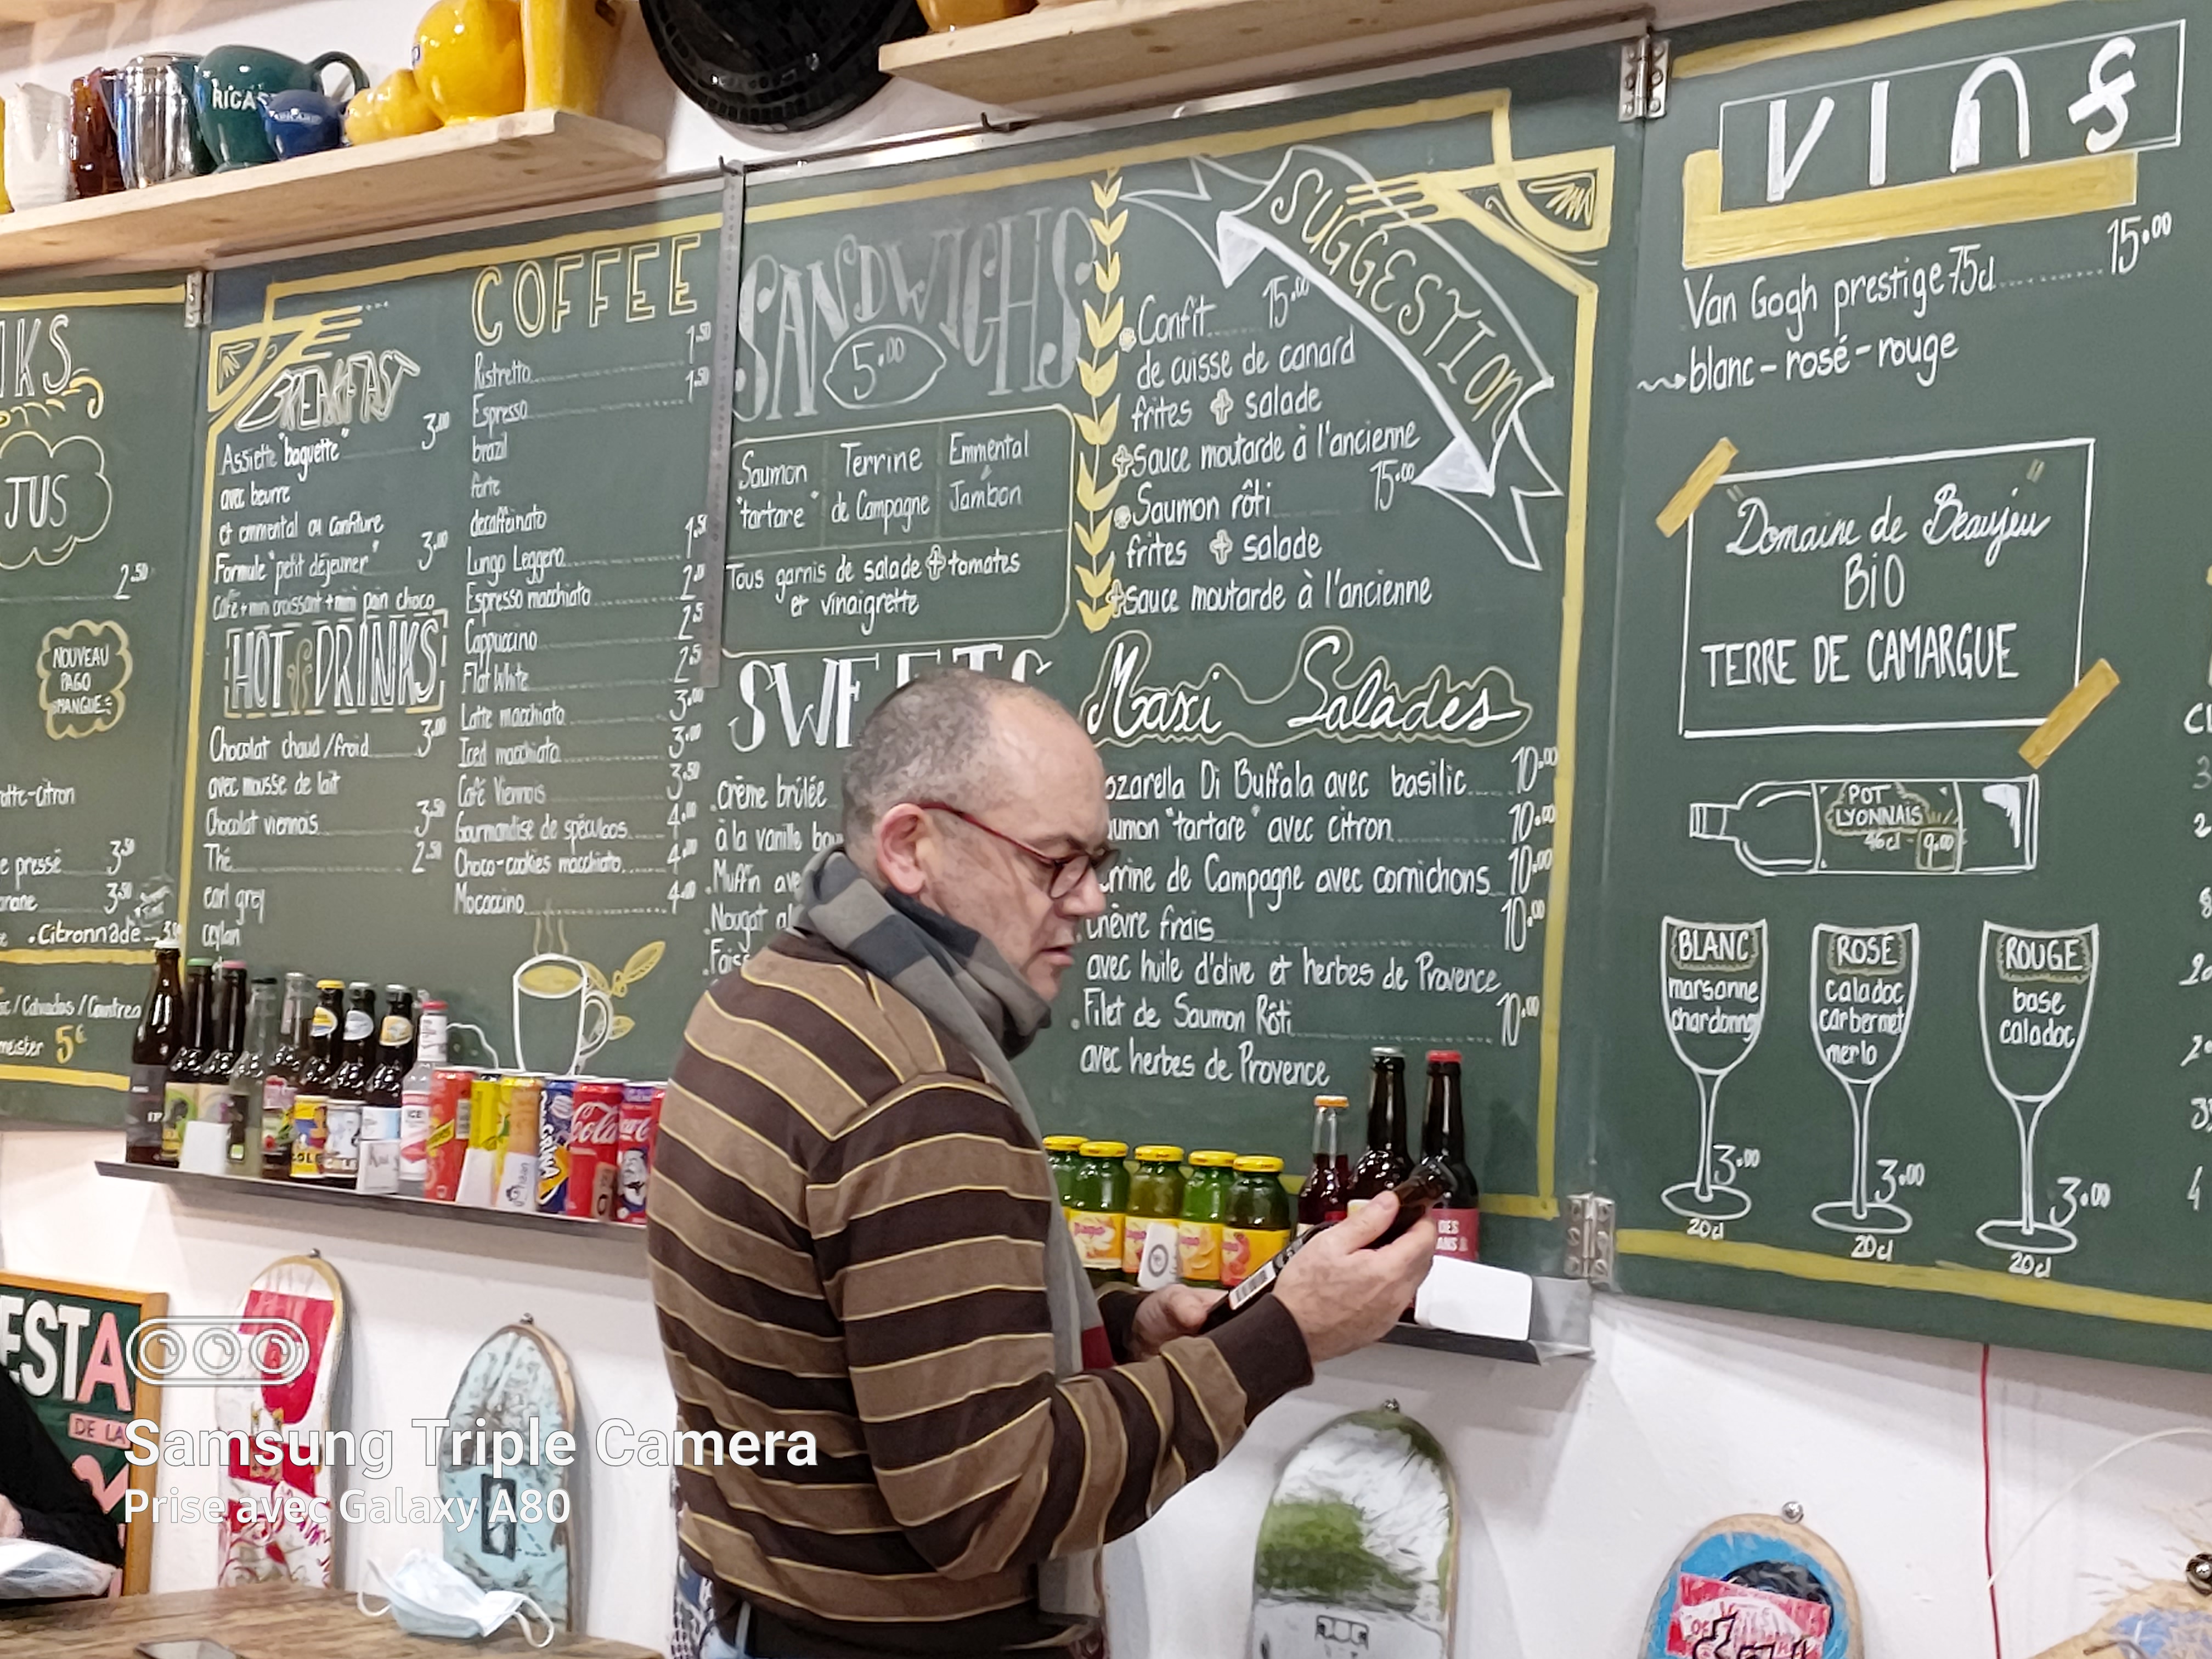 RICAR
JUS
2.50
NOUVEAU
PAGO
MANGUE
3.50
3.50
.Citronnade
meister 5€
BREAKFAST
Assiette "baguette" 3.00
avec beurre
et emmental ou confiture
Formule "petit déjeuner" 3.00
Café + mini croissant + mini pain choco
HOT DRINKS
Chocolat chaud/froid 3.00
avec mousse de lait
Chocolat viennois 3.50
Thé 2.50
earl grey
ceylan
COFFEE
Ristretto 1.50
Espresso 1.50
brazil
forte
decaffeinato
Lungo Leggero 1.50
Espresso macchiato 2.00
Cappuccino 2.50
Flat White 2.50
Latte macchiato 3.00
Iced macchiato 3.00
Café Viennois 3.50
Gourmandise de spéculoos 4.00
Choco-cookies macchiato 4.00
Mococcino 4.00
SANDWICHS
5.00
Saumon "tartare"
Terrine de Campagne
Emmental & Jambon
Tous garnis de salade + tomates
et vinaigrette
SWEETS
.crème brûlée
à la vanille
.Muffin
.Nougat
SUGGESTION
Confit 15.00
de cuisse de canard
frites + salade
+ Sauce moutarde à l'ancienne
Saumon rôti 15.00
frites + salade
+ sauce moutarde à l'ancienne
Maxi Salades
ozarella Di Buffala avec basilic 10.00
umon "tartare" avec citron 10.00
rrine de Campagne avec cornichons 10.00
chèvre frais 10.00
avec huile d'olive et herbes de Provence
.Filet de Saumon Rôti 10.00
avec herbes de Provence
VINS
Van Gogh prestige 75cl 15.00
blanc - rosé - rouge
"Domaine de Beaujeu"
BIO
TERRE DE CAMARGUE
POT
LYONNAIS
46cl - 9.00
BLANC
marsanne
chardonnay
3.00
20cl
ROSÉ
caladoc
carbernet
merlo
3.00
20cl
ROUGE
base
caladoc
3.00
20cl
Pago
DES
ANS
ESTA
DE LA
Samsung Triple Camera
Prise avec Galaxy A80